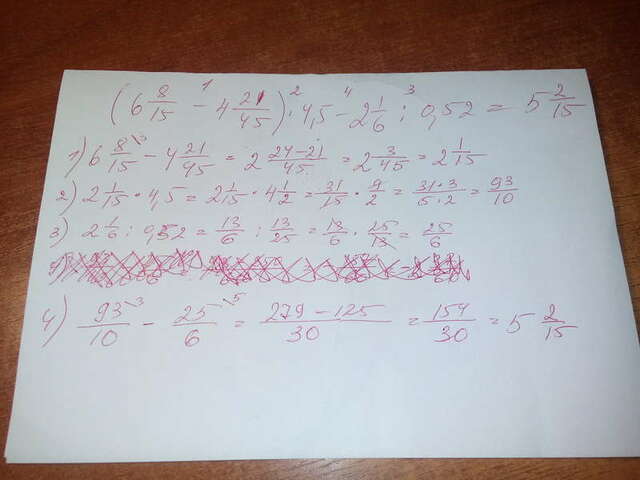 (6 8/15 - 4 21/45) · 4,5 - 2 1/6 : 0,52 = 5 2/15
1) 6 8/15 - 4 21/45 = 2 24-21/45 = 2 3/45 = 2 1/15
2) 2 1/15 · 4,5 = 2 1/15 · 4 1/2 = 31/15 · 9/2 = 31·3/5·2 = 93/10
3) 2 1/6 : 0,52 = 13/6 : 13/25 = 13/6 · 25/13 = 25/6
4) 93/10 - 25/6 = 279-125/30 = 154/30 = 5 2/15